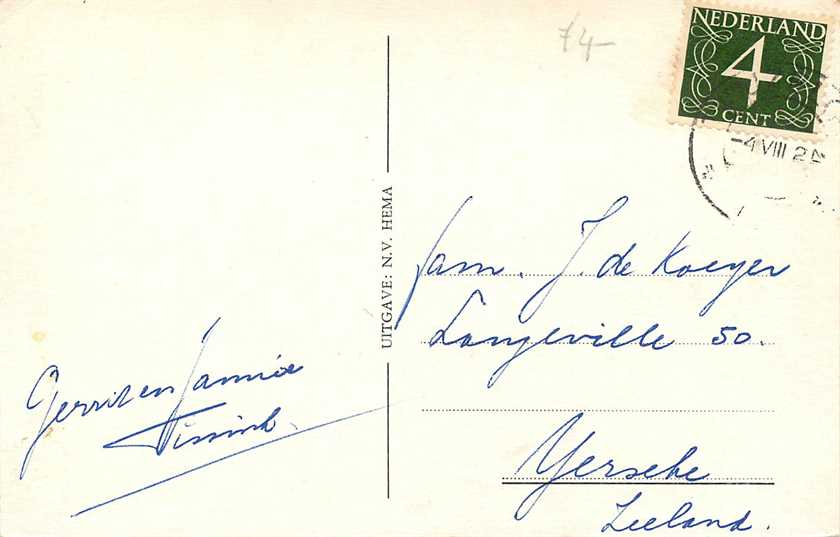 74-
NEDERLAND
4
CENT
-4 VIII 2
UITGAVE: N.V. HEMA
fam. J. de Koeyer
Langeville 50.
Yerseke
Zeeland.
Gerrit en Jannie